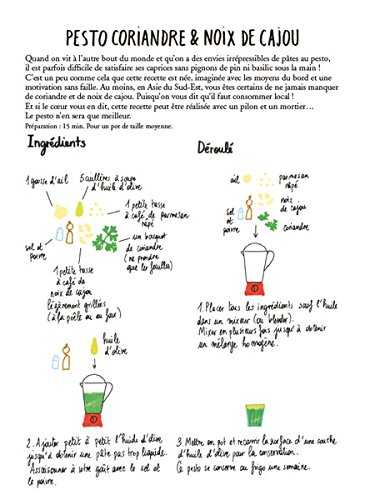 PESTO CORIANDRE & NOIX DE CAJOU
Quand on vit à l'autre bout du monde et qu'on a des envies irrépressibles de pâtes au pesto,
il est parfois difficile de satisfaire ses caprices sans pignons de pin ni basilic sous la main !
C'est un peu comme cela que cette recette est née, imaginée avec les moyens du bord et une
motivation sans faille. Au moins, en Asie du Sud-Est, vous êtes certains de ne jamais manquer
de coriandre et de noix de cajou. Puisqu'on vous dit qu'il faut consommer local !
Et si le cœur vous en dit, cette recette peut être réalisée avec un pilon et un mortier…
Le pesto n'en sera que meilleur.
Préparation : 15 min. Pour un pot de taille moyenne.
Ingrédients
1 gousse d'ail
5 cuillères à soupe
d'huile d'olive
1 petite tasse
à café de parmesan
râpé
sel et
poivre
un bouquet
de coriandre
(ne prendre
que les feuilles)
1 petite tasse
à café de
noix de cajou
légèrement grillées
(à la poêle ou au four)
Déroulé
ail
parmesan
râpé
sel et
poivre
noix
de cajou
coriandre
1. Placer tous les ingrédients sauf l'huile
dans un mixeur (ou blender).
Mixer en plusieurs fois jusqu'à obtenir
un mélange homogène.
huile
d'olive
2. Ajouter petit à petit l'huile d'olive
jusqu'à obtenir une pâte pas trop liquide.
Assaisonner à votre goût avec le sel et
le poivre.
3 Mettre en pot et recouvrir la surface d'une couche
d'huile d'olive pour la conservation.
Ce pesto se conserve au frigo une semaine.